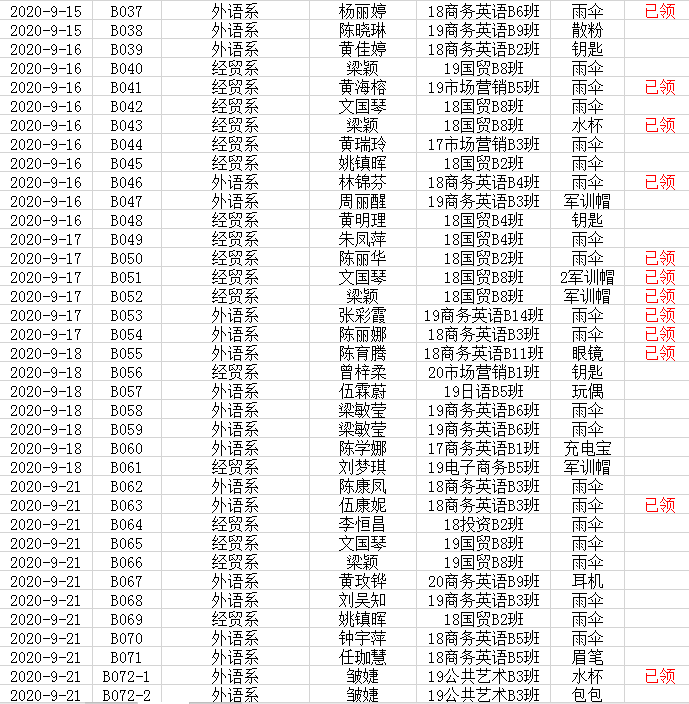 2020-9-15 B037 外语系 杨丽婷 18商务英语B6班 雨伞 已领
2020-9-15 B038 外语系 陈晓琳 19商务英语B9班 散粉
2020-9-16 B039 外语系 黄佳婷 18商务英语B2班 钥匙
2020-9-16 B040 经贸系 梁颖 19国贸B8班 雨伞
2020-9-16 B041 经贸系 黄海榕 19市场营销B5班 雨伞 已领
2020-9-16 B042 经贸系 文国琴 18国贸B8班 雨伞
2020-9-16 B043 经贸系 梁颖 18国贸B8班 水杯 已领
2020-9-16 B044 经贸系 黄瑞玲 17市场营销B3班 雨伞
2020-9-16 B045 经贸系 姚镇晖 18国贸B2班 雨伞
2020-9-16 B046 外语系 林锦芬 18商务英语B4班 雨伞 已领
2020-9-16 B047 外语系 周丽醒 19商务英语B3班 军训帽
2020-9-16 B048 经贸系 黄明理 18国贸B4班 钥匙
2020-9-17 B049 经贸系 朱凤萍 18国贸B4班 雨伞
2020-9-17 B050 经贸系 陈丽华 18国贸B2班 雨伞 已领
2020-9-17 B051 经贸系 文国琴 18国贸B8班 2军训帽 已领
2020-9-17 B052 经贸系 梁颖 18国贸B8班 军训帽 已领
2020-9-17 B053 外语系 张彩霞 19商务英语B14班 雨伞 已领
2020-9-17 B054 外语系 陈丽娜 18商务英语B3班 雨伞 已领
2020-9-18 B055 外语系 陈育腾 18商务英语B11班 眼镜 已领
2020-9-18 B056 经贸系 曾梓柔 20市场营销B1班 钥匙
2020-9-18 B057 外语系 伍霖蔚 19日语B5班 玩偶
2020-9-18 B058 外语系 梁敏莹 19商务英语B6班 雨伞
2020-9-18 B059 外语系 梁敏莹 19商务英语B6班 雨伞
2020-9-18 B060 外语系 陈学娜 17商务英语B1班 充电宝
2020-9-18 B061 经贸系 刘梦琪 19电子商务B5班 军训帽
2020-9-21 B062 外语系 陈康凤 18商务英语B3班 雨伞
2020-9-21 B063 外语系 伍康妮 18商务英语B3班 雨伞 已领
2020-9-21 B064 经贸系 李恒昌 18投资B2班 雨伞
2020-9-21 B065 经贸系 文国琴 19国贸B8班 雨伞
2020-9-21 B066 经贸系 梁颖 19国贸B8班 雨伞
2020-9-21 B067 外语系 黄玫铧 20商务英语B9班 耳机
2020-9-21 B068 外语系 刘吴知 19商务英语B3班 雨伞
2020-9-21 B069 经贸系 姚镇晖 18国贸B2班 雨伞
2020-9-21 B070 外语系 钟宇萍 18商务英语B5班 雨伞
2020-9-21 B071 外语系 任珈慧 18商务英语B5班 眉笔
2020-9-21 B072-1 外语系 邹婕 19公共艺术B3班 水杯 已领
2020-9-21 B072-2 外语系 邹婕 19公共艺术B3班 包包